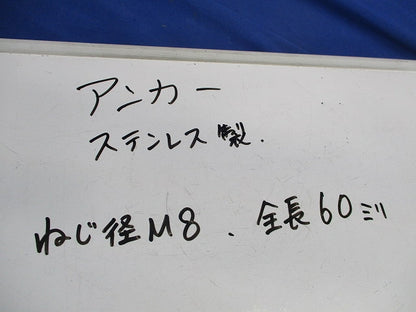 アンカー
ステンレス製.
ねじ径M8、全長60ミリ